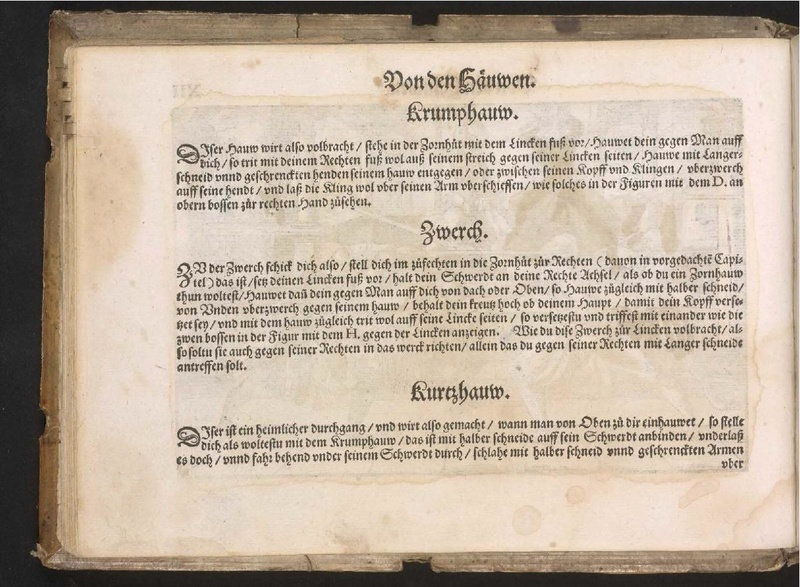 Von den Häuwen.
Krumphauw.
DIser Hauw wirt also volbracht / stehe in der Zornhůt mit dem Lincken fůß vor / Hauwet dein gegen Man auff
dich / so trit mit deinem Rechten fůß wol auß seinem streich gegen seiner Lincken seiten / Hauwe mit Langer-
schneid vnnd geschrenckten henden seinem hauw entgegen / oder zwischen seinen Kopff vnd Klingen / vberzwerch
auff seine hendt / vnd laß die Kling wol vber seinen Arm vberschiessen / wie solches in der Figuren mit dem D. an
obern bossen zůr rechten Hand zůsehen.
Zwerch.
ZV der Zwerch schick dich also / stell dich im zůfechten in die Zornhůt zůr Rechten ( dauon in vorgedachtē Capi-
tel ) das ist / setz deinen Lincken fůß vor / halt dein Schwerdt an deine Rechte Achsel / als ob du ein Zornhauw
thun woltest / Hauwet dañ dein gegen Man auff dich von dach oder Oben / so Hauwe zůgleich mit halber schneid /
von Vnden vberzwerch gegen seinem hauw / behalt dein kreutz hoch ob deinem Haupt / damit dein Kopff verse-
tzet sey / vnd mit dem hauw zůgleich trit wol auff seine Lincke seiten / so versetzestu vnd triffest mit einander wie die
zwen bossen in der Figur mit dem H. gegen der Lincken anzeigen. Wie du dise Zwerch zůr Lincken volbracht / al-
so soltu sie auch gegen seiner Rechten in das werck richten / allein das du gegen seiner Rechten mit Langer schneide
antreffen solt.
Kurtzhauw.
DIser ist ein heimlicher durchgang / vnd wirt also gemacht / wann man von Oben zů dir einhauwet / so stelle
dich als woltestu mit dem Krumphauw / das ist mit halber schneide auff sein Schwerdt anbinden / vnderlaß
es doch / vnnd fahr behend vnder seinem Schwerdt durch / schlahe mit halber schneid vnnd geschrenckten Armen
vber